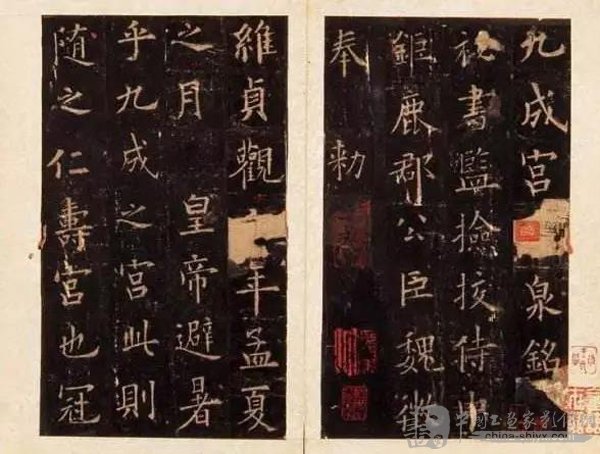 九成宮泉銘
祕書監撿挍侍中
鉅鹿郡公臣魏徵
奉 勅
維貞觀年孟夏
之月 皇帝避暑
乎九成之宮此則
随之仁壽宮也冠